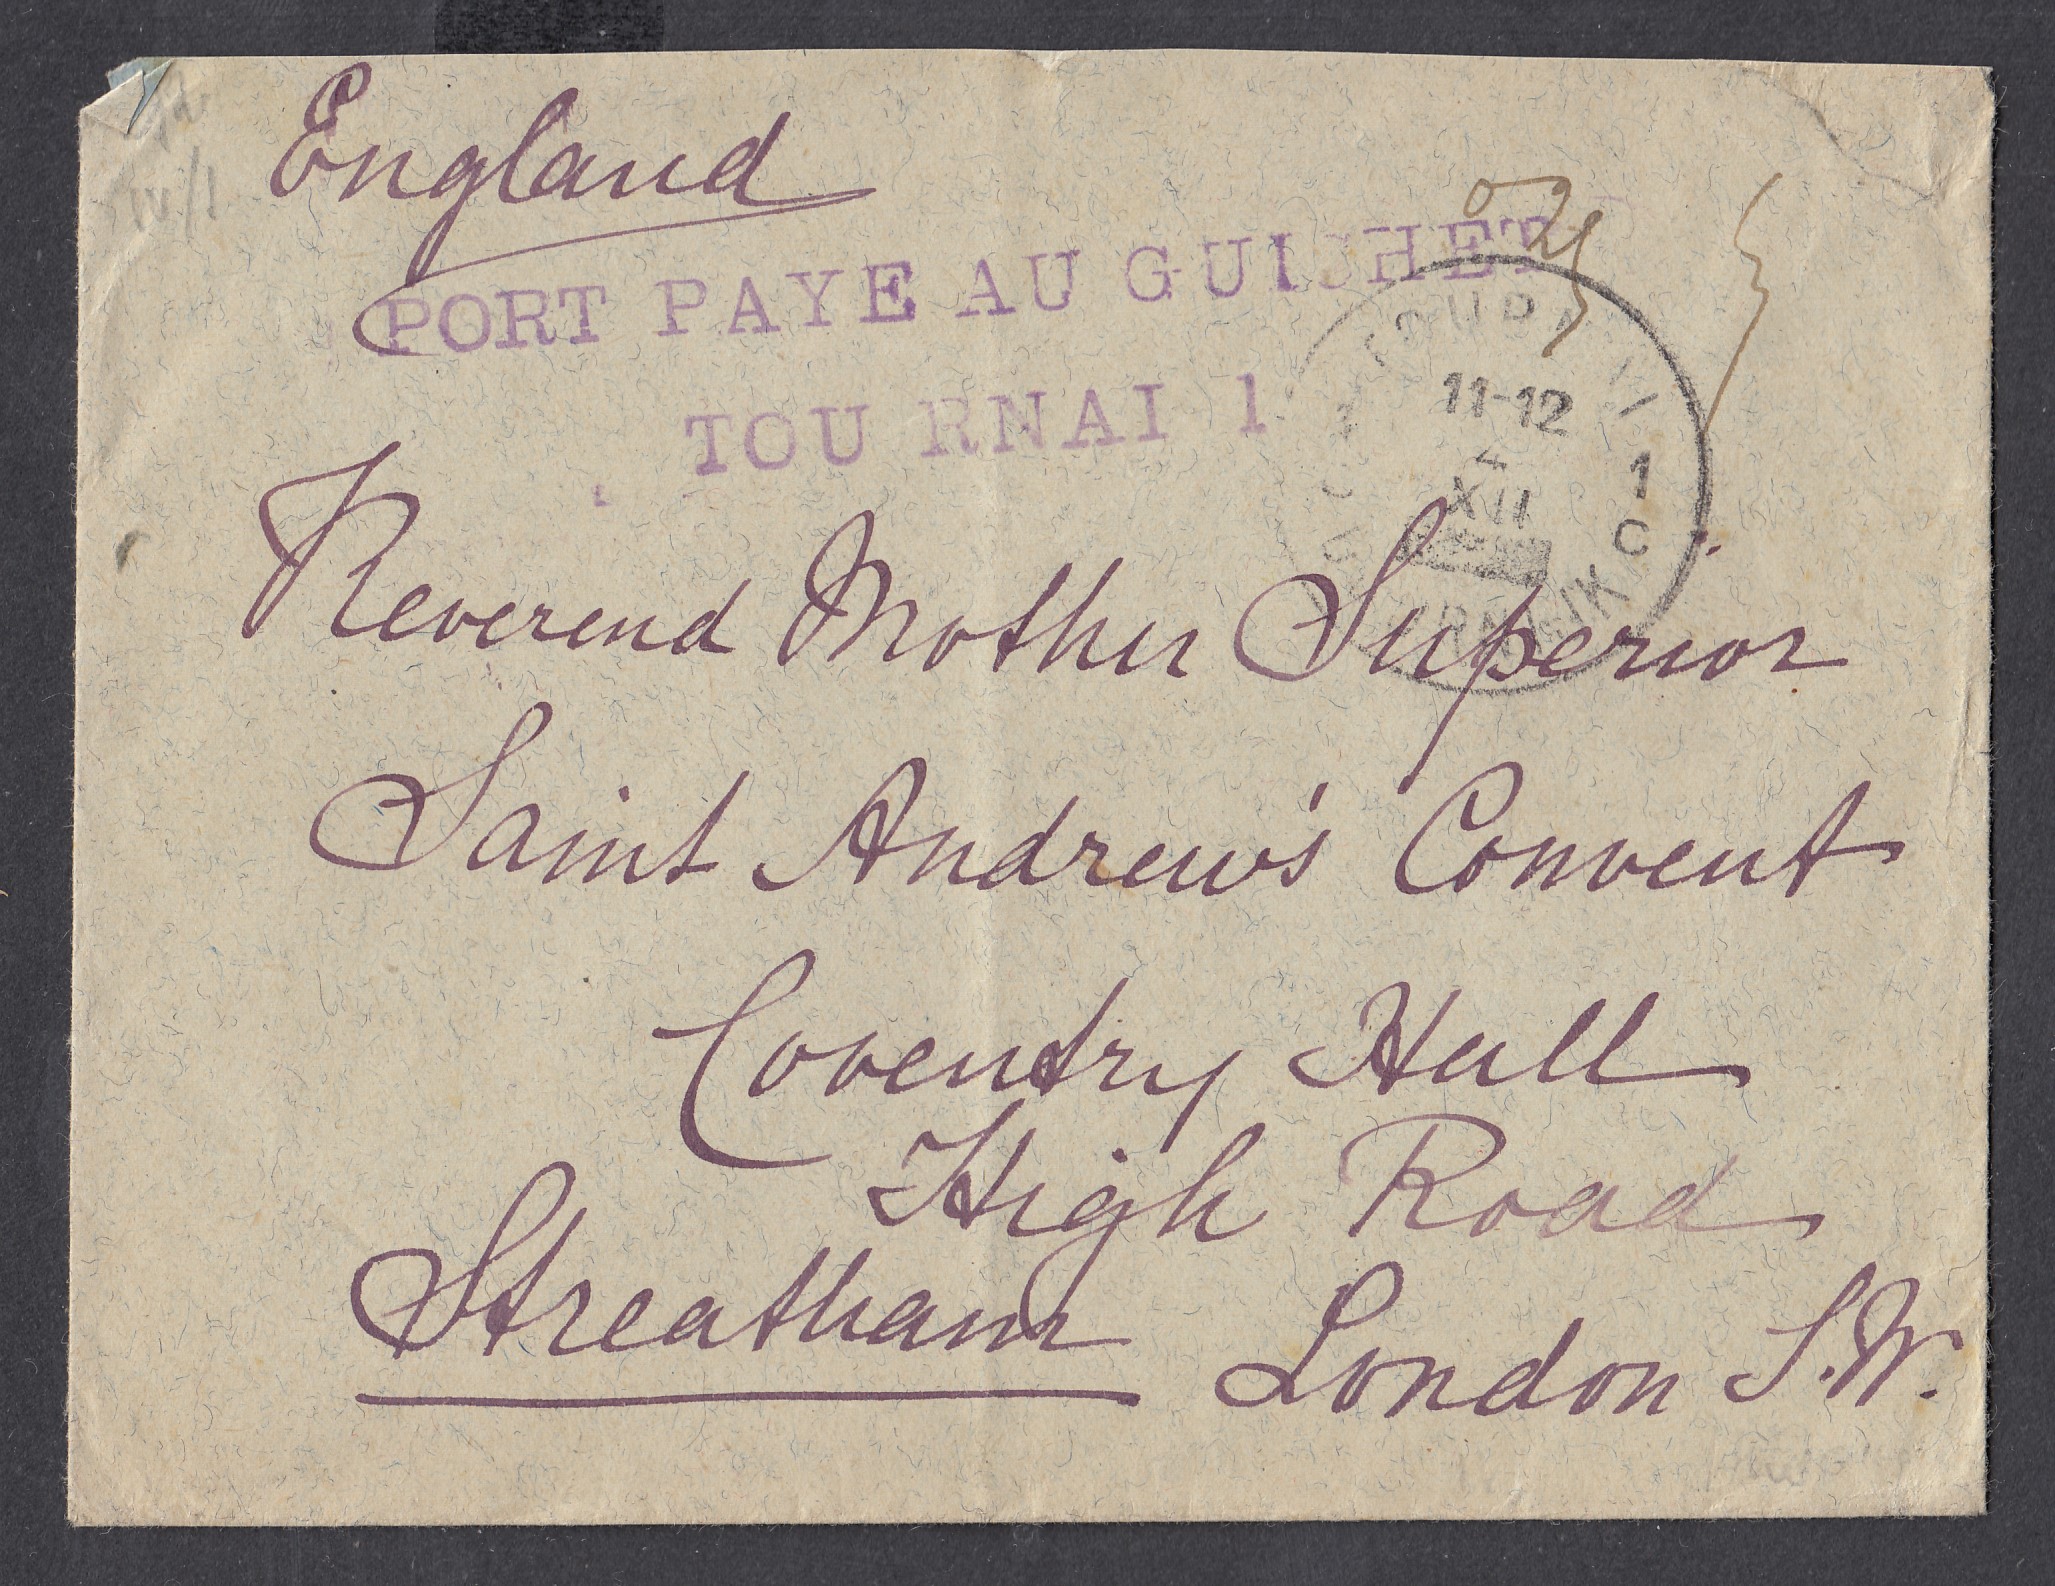 England
PORT PAYE AU GUICHET
TOURNAI 1
TOURNAI 1
11-12
4
XII
1
C
DOORNIK
Reverend Mother Superior
Saint Andrew's Convent
Coventry Hall
High Road
Streatham London S.W.